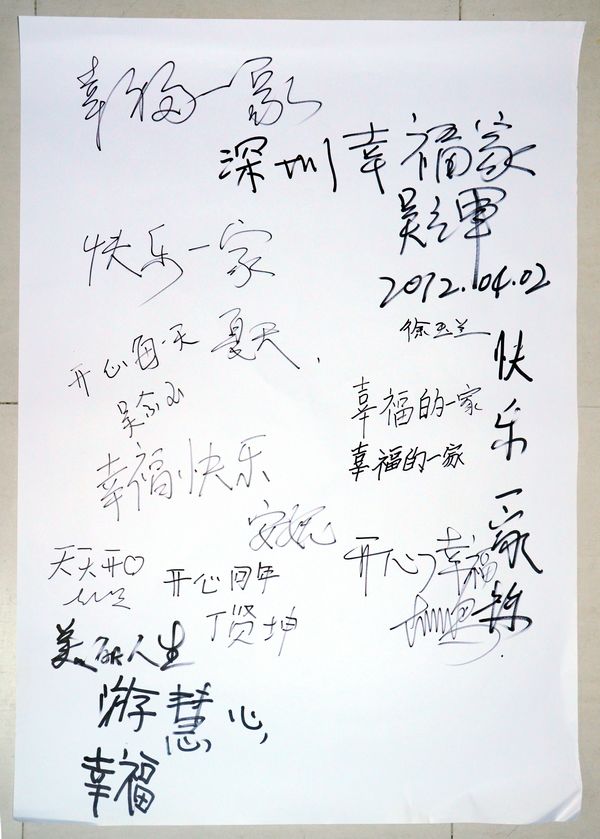 幸福一家
深圳幸福家
2012.04.02
快乐一家
徐玉兰
开心每一天 夏天
快乐一家
幸福的一家
幸福的一家
幸福快乐
安妮
开心幸福
天天开♡
开心同年
丁贤坤
人生
游慧心,
幸福